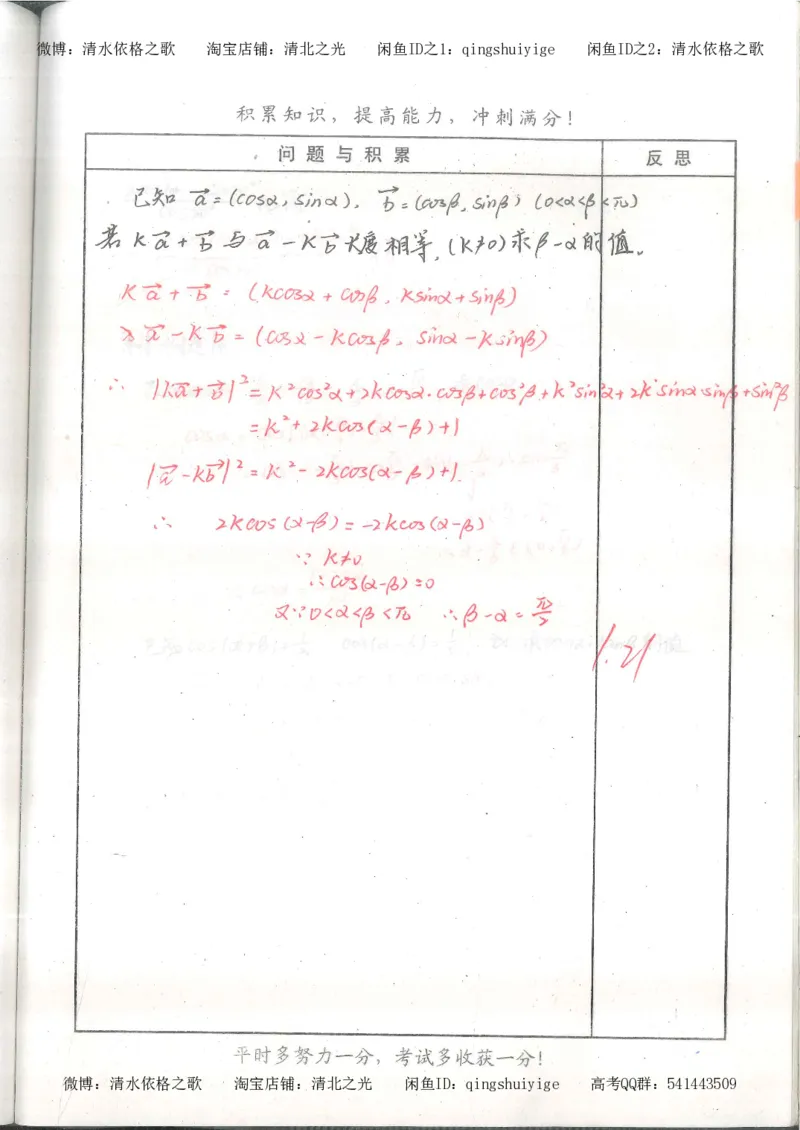 微博：清水依格之歌 淘宝店铺：清北之光 闲鱼ID之1：qingshuiyige 闲鱼ID之2：清水依格之歌
积累知识，提高能力，冲刺满分！
问题与积累 反思
已知 a⃗=(cosα, sinα), b⃗=(cosβ, sinβ) (0<α<β<π)
若 Ka⃗+b⃗ 与 a⃗-Kb⃗ 长度相等,(K≠0)求β-α的值。
Ka⃗+b⃗ = (Kcosα+cosβ, Ksinα+sinβ)
a⃗-Kb⃗ = (cosα-Kcosβ, sinα-Ksinβ)
∴ |Ka⃗+b⃗|²=K²cos²α+2Kcosα·cosβ+cos²β+K²sin²α+2K·sinα·sinβ+sin²β
=K²+2Kcos(α-β)+1
|a⃗-Kb⃗|²=K²-2Kcos(α-β)+1.
∴ 2Kcos(α-β)=-2Kcos(α-β)
∵ K≠0
∴cos(α-β)=0
又∵0<α<β<π ∴β-α=π/2
1.21
平时多努力一分，考试多收获一分！
微博：清水依格之歌 淘宝店铺：清北之光 闲鱼ID：qingshuiyige 高考QQ群：541443509